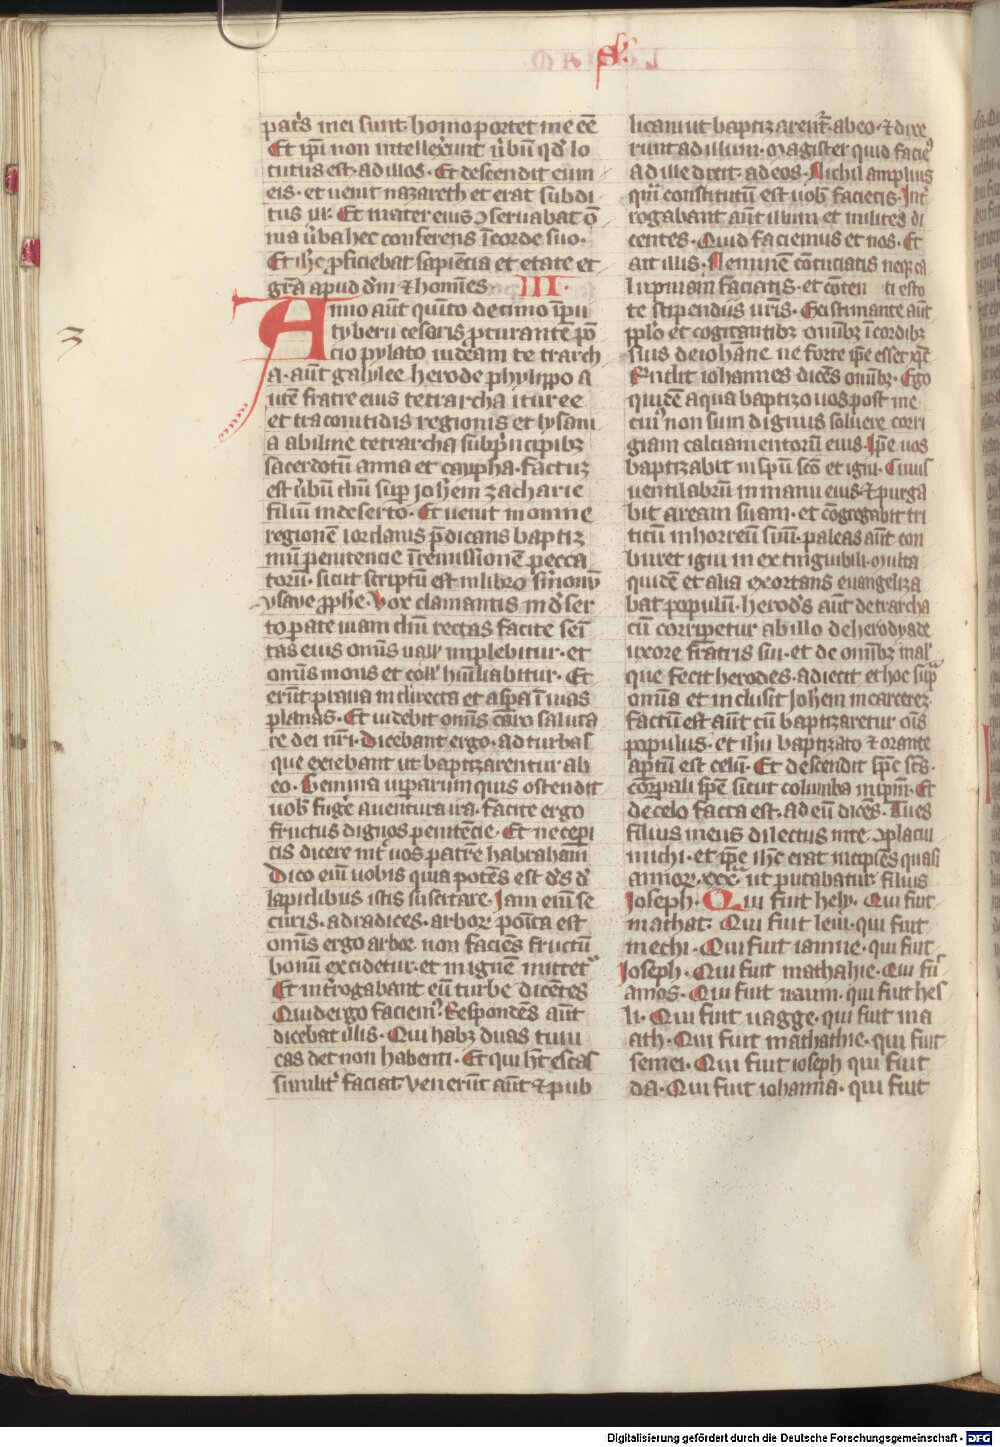 S.
patͥs mei sunt homo portet me eē
Et ipi non intellexerunt ūbū qd lo
tutus est ad illos. Et descendit cum
eis. et uenit nazareth et erat subdi
tus ill. Et mater eius ꝯseruabat ō
nia ūba hec conferens ī corde suo.
Et ihc ꝓficiebat sapiencia et etate et
grā apud dm̄ ⁊ homines III.
Anno aūt quīto decimo īpii
tyberii cesaris ꝓcurante pō
cio pylato iudeam te trarch
a. aūt galylee herode phylippo a
utē fratre eius tetrarcha ituree
et traconitidis regionis et lysani
a abiline tetrarcha sub pͥncipibꝫ
sacerdotū anna et cayꝑha. factuꝫ
est ūbū dn̄i suꝑ johēm zacharie
filiū in deserto. Et uenit in omne
regionē iordanis p̄dicans baptiꝫ
mū penitencie ī remissionē pecca
torū. sicut scriptū est in libro sͥmonū
ysaye ꝓphe. Vox clamantis in dser
to parate uiam dn̄i rectas facite sei
tas eius omīs uall implebitur. et
omīs mons et coll humiliabitur. Et
erūt praua in directa et aspa ī uias
planas. Et uidebit omīs caro saluta
re dei nr̄i. Dicebant ergo. ad turbas
que exiebant ut baptizarentur ab
eo. Genimina uiperarum quis ostendit
uob fugͤe a uentura ira. facite ergo
fructus dignos penitēcie. Et ne cepi
tis dicere intͬ uos patrē habraham
Dico eīm uobis quia potēs est ds d
lapidibus istis suscitare. Jam eīm se
curis. ad radices. arboꝝ poita est
omīs ergo arbor non faciēs fructū
bonū excidetur. et in ignē mittetͬ
Et intͬrogabant eū turbe dicētes
Quid ergo faciemꝰ. Respondēs aūt
dicebat illis. Qui habꝫ duas tuni
cas det non habenti. Et qui ht escas
similitͬ faciat. Venerūt aūt ⁊ pub
licani ut baptizarentͬ. ab eo. ⁊ dixe
runt ad illum. Magister quid faciēꝰ
Ad ille dixit. ad eos. Nichil amplius
qm̄ constitutū est uob. facietis. Intͬ
rogabant aūt illum et milites di
centes. Quid faciemus et nos. Et
ait illis. Neminē cōcuciatis neqꝫ ca
lupniam faciatis. et cōten ti esto
te stipendiis ur̄is. Existimante aūt
ppl̄o et cogitantibꝫ omībꝫ ī cordibꝫ
suis de iohāne ne forte ip̄e esset xp̄c
Rn̄dit iohannes dicēs omībꝫ. Ego
quidē aqua baptizo uos post me
cuiꝰ non sum dignus soluere corri
giam calciamentorū eius. Ip̄e uos
baptizabit in sp̄u scō et igni. Cuius
uentilabrū in manu eius. ⁊ purga
bit aream suam. et cōgregabit tri
ticū in horreū suū. paleas aūt con
buret igni in extinguibili. Multa
quidē et alia exortans euangeliza
bat populū. herods aūt detrarcha
cū corripetur ab illo de herodyade
uxore fratris sui. et de omībꝫ mal
que fecit herodes. adiecit et hoc supͣ
omīa et in clusit Johēm in carcereꝫ.
factū est aūt cū baptizaretur oīs
populus. et ihu baptizato ⁊ orante
aꝑtū est celū. Et descendit sp̄c scs.
corꝑali spēe sicut columba in ipm̄. Et
de celo facta est. ad eū dicēs. Tu es
filius meus dilectus in te. ꝯplacui
michi. et ip̄e ihc erat incipēs quasi
annoꝝ. xxx.ta ut putabatur filius
Joseph. Qui fuit hely. Qui fuit
mathat. Qui fuit leui. qui fuit
mechi. Qui fuit iamne. qui fuit
Joseph. Qui fuit mathahie. Qui fuī
amos. Qui fuit naum. qui fuit hes
li. Qui fuit nagge. qui fuit ma
ath. Qui fuit mathathie. qui fuit
semei. Qui fuit ioseph qui fuit
da. Qui fuit iohanna. qui fuit
3
Digitalisierung gefördert durch die Deutsche Forschungsgemeinschaft - DFG